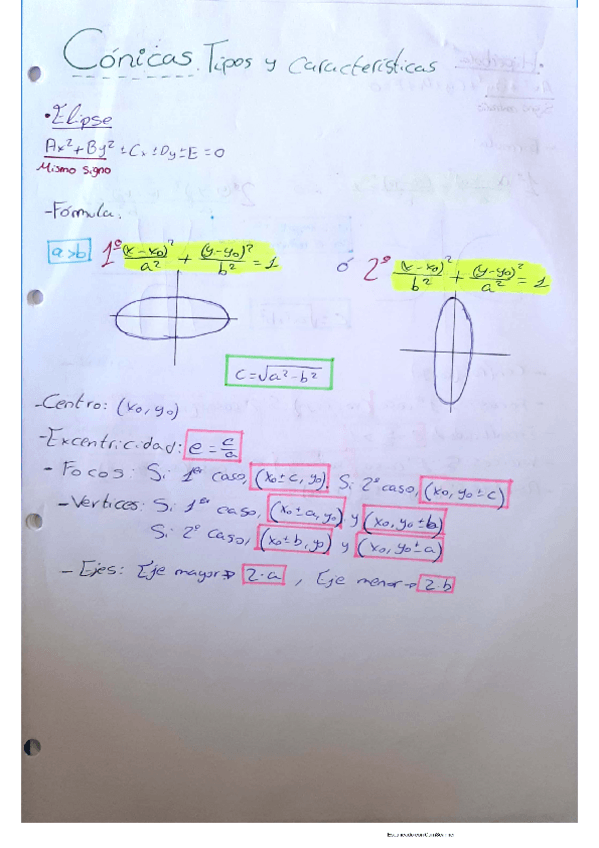 Cónicas. Tipos y características
• Elipse
Ax² + By² ± Cx ± Dy ± E = 0
Mismo signo
- Fórmula.
a>b 1º (x-x₀)²/a² + (y-y₀)²/b² = 1 ó 2º (x-x₀)²/b² + (y-y₀)²/a² = 1
c = √a²-b²
- Centro: (x₀, y₀)
- Excentricidad: e = c/a
- Focos: Si 1er caso, (x₀ ± c, y₀). Si 2º caso, (x₀, y₀ ± c)
- Vertices: Si 1er caso, (x₀ ± a, y₀) y (x₀, y₀ ± b)
Si 2º caso, (x₀ ± b, y₀) y (x₀, y₀ ± a)
- Ejes: Eje mayor → 2·a, Eje menor → 2·b
Escaneado con CamScanner